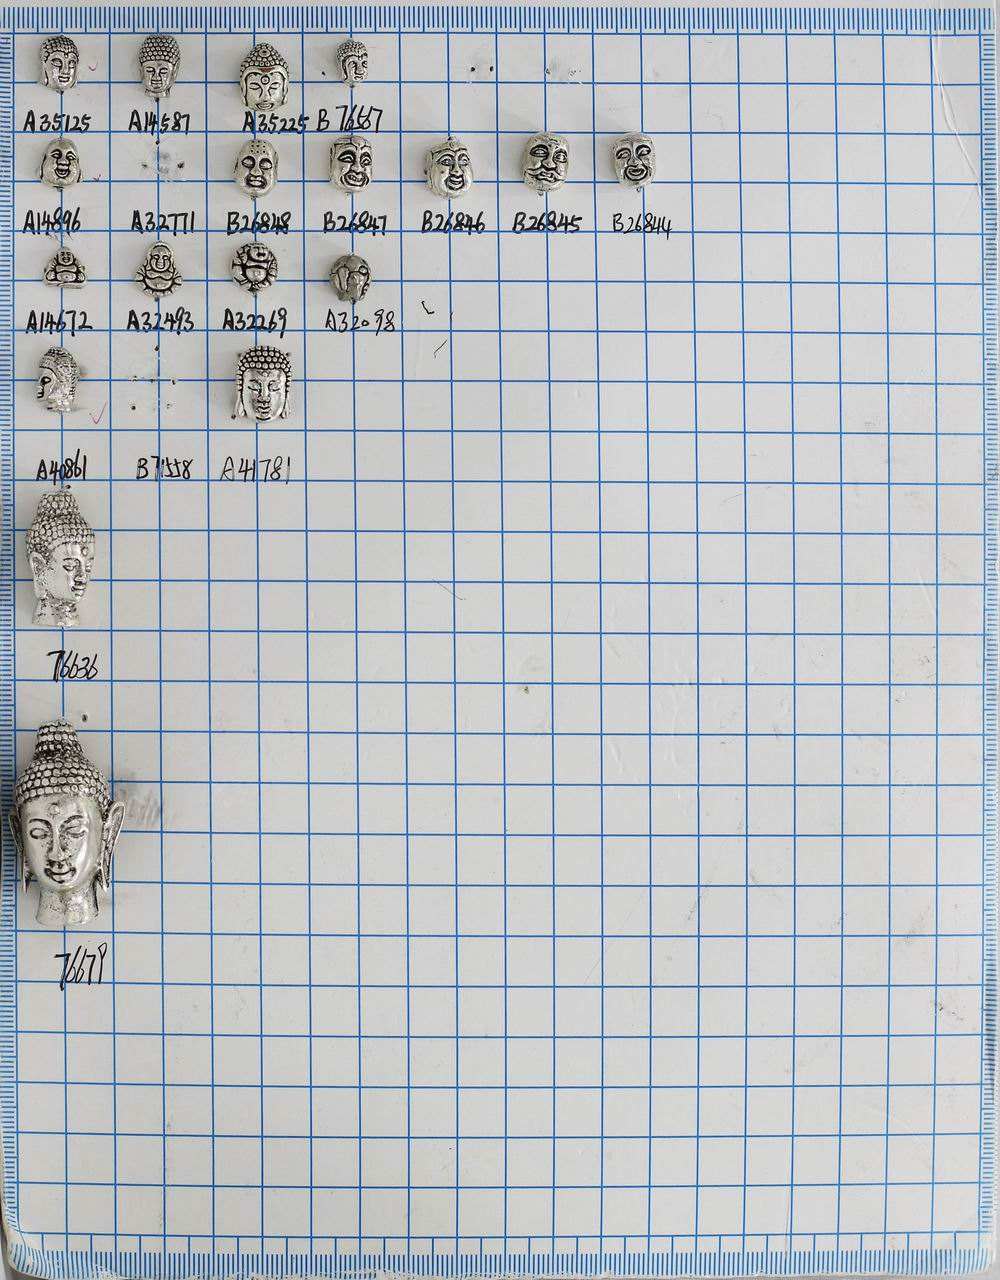 A35125 A14587 A35225 B76567
A14896 A32771 B26848 B26847 B26846 B26845 B26844
A14672 A32493 A32269 A32098
A40861 B71558 A41781
76636
76679